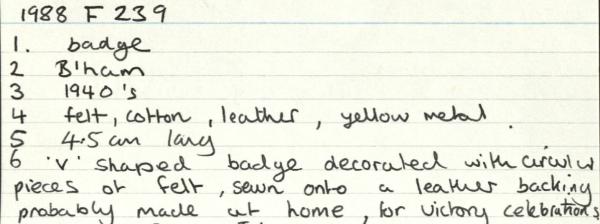 1988 F 239
1. badge
2 B'ham
3 1940's
4 felt, cotton, leather, yellow metal.
5 4.5 cm long
6 'V' shaped badge decorated with circular
pieces of felt, sewn onto a leather backing
probably made at home, for victory celebrations